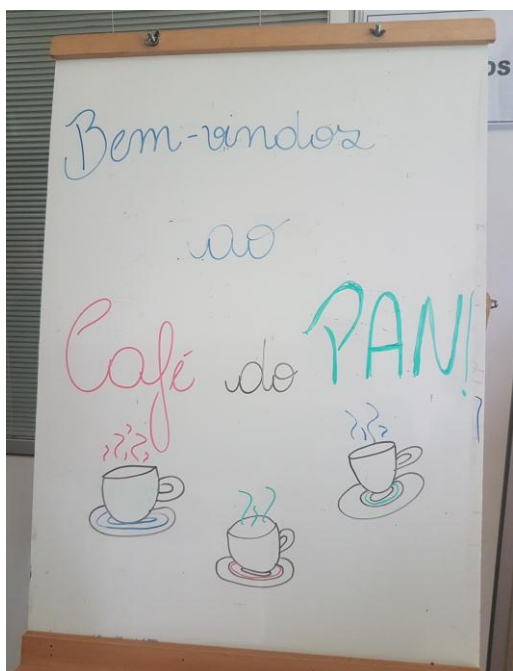 os
Bem-vindos
ao
Café do PAN!